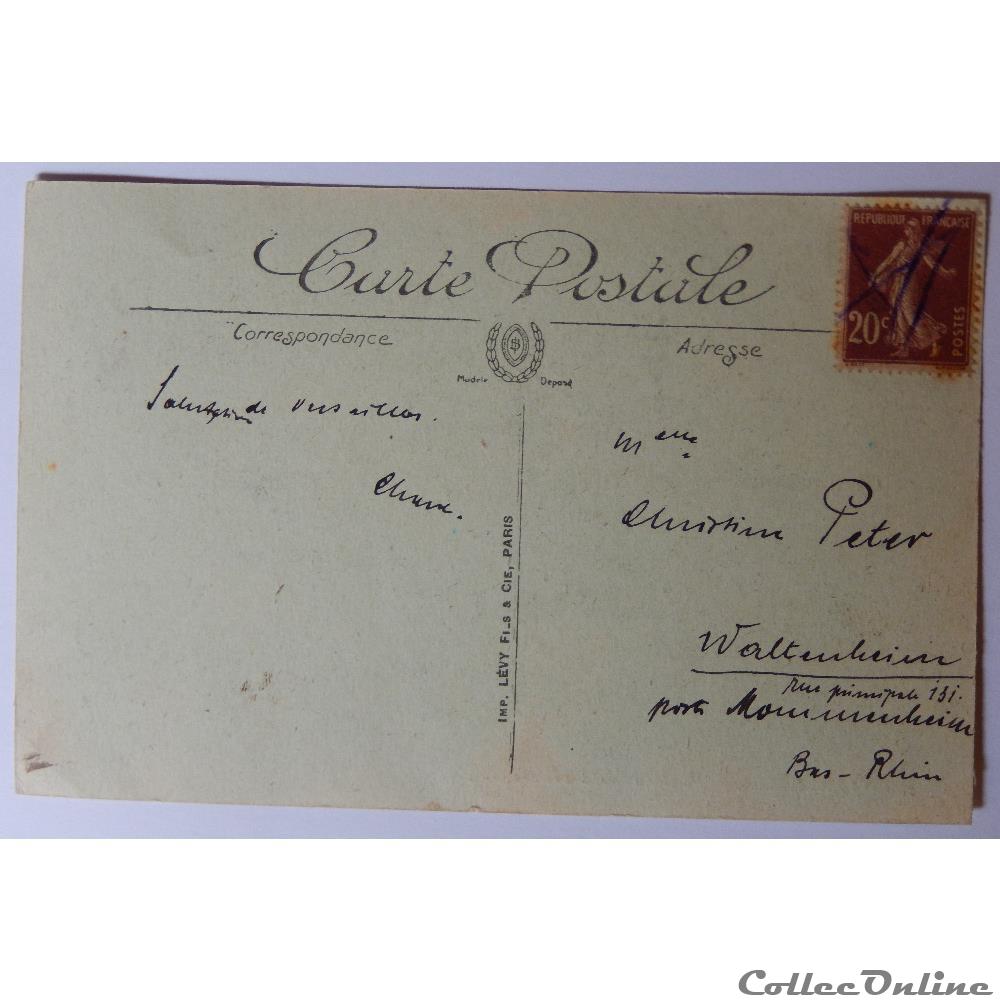 Carte Postale
Correspondance
Adresse
Modèle Déposé
RÉPUBLIQUE FRANÇAISE
20c
POSTES
de Versailles.
IMP. LÉVY FILS & CIE, PARIS
Melle
Christine Peter
Waltenheim
rue principale 131.
poste Mommenheim
Bas-Rhin
CollecOnline